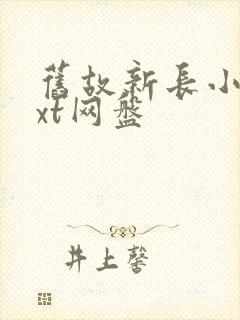 舊故新長小
xt网盤
井上馨